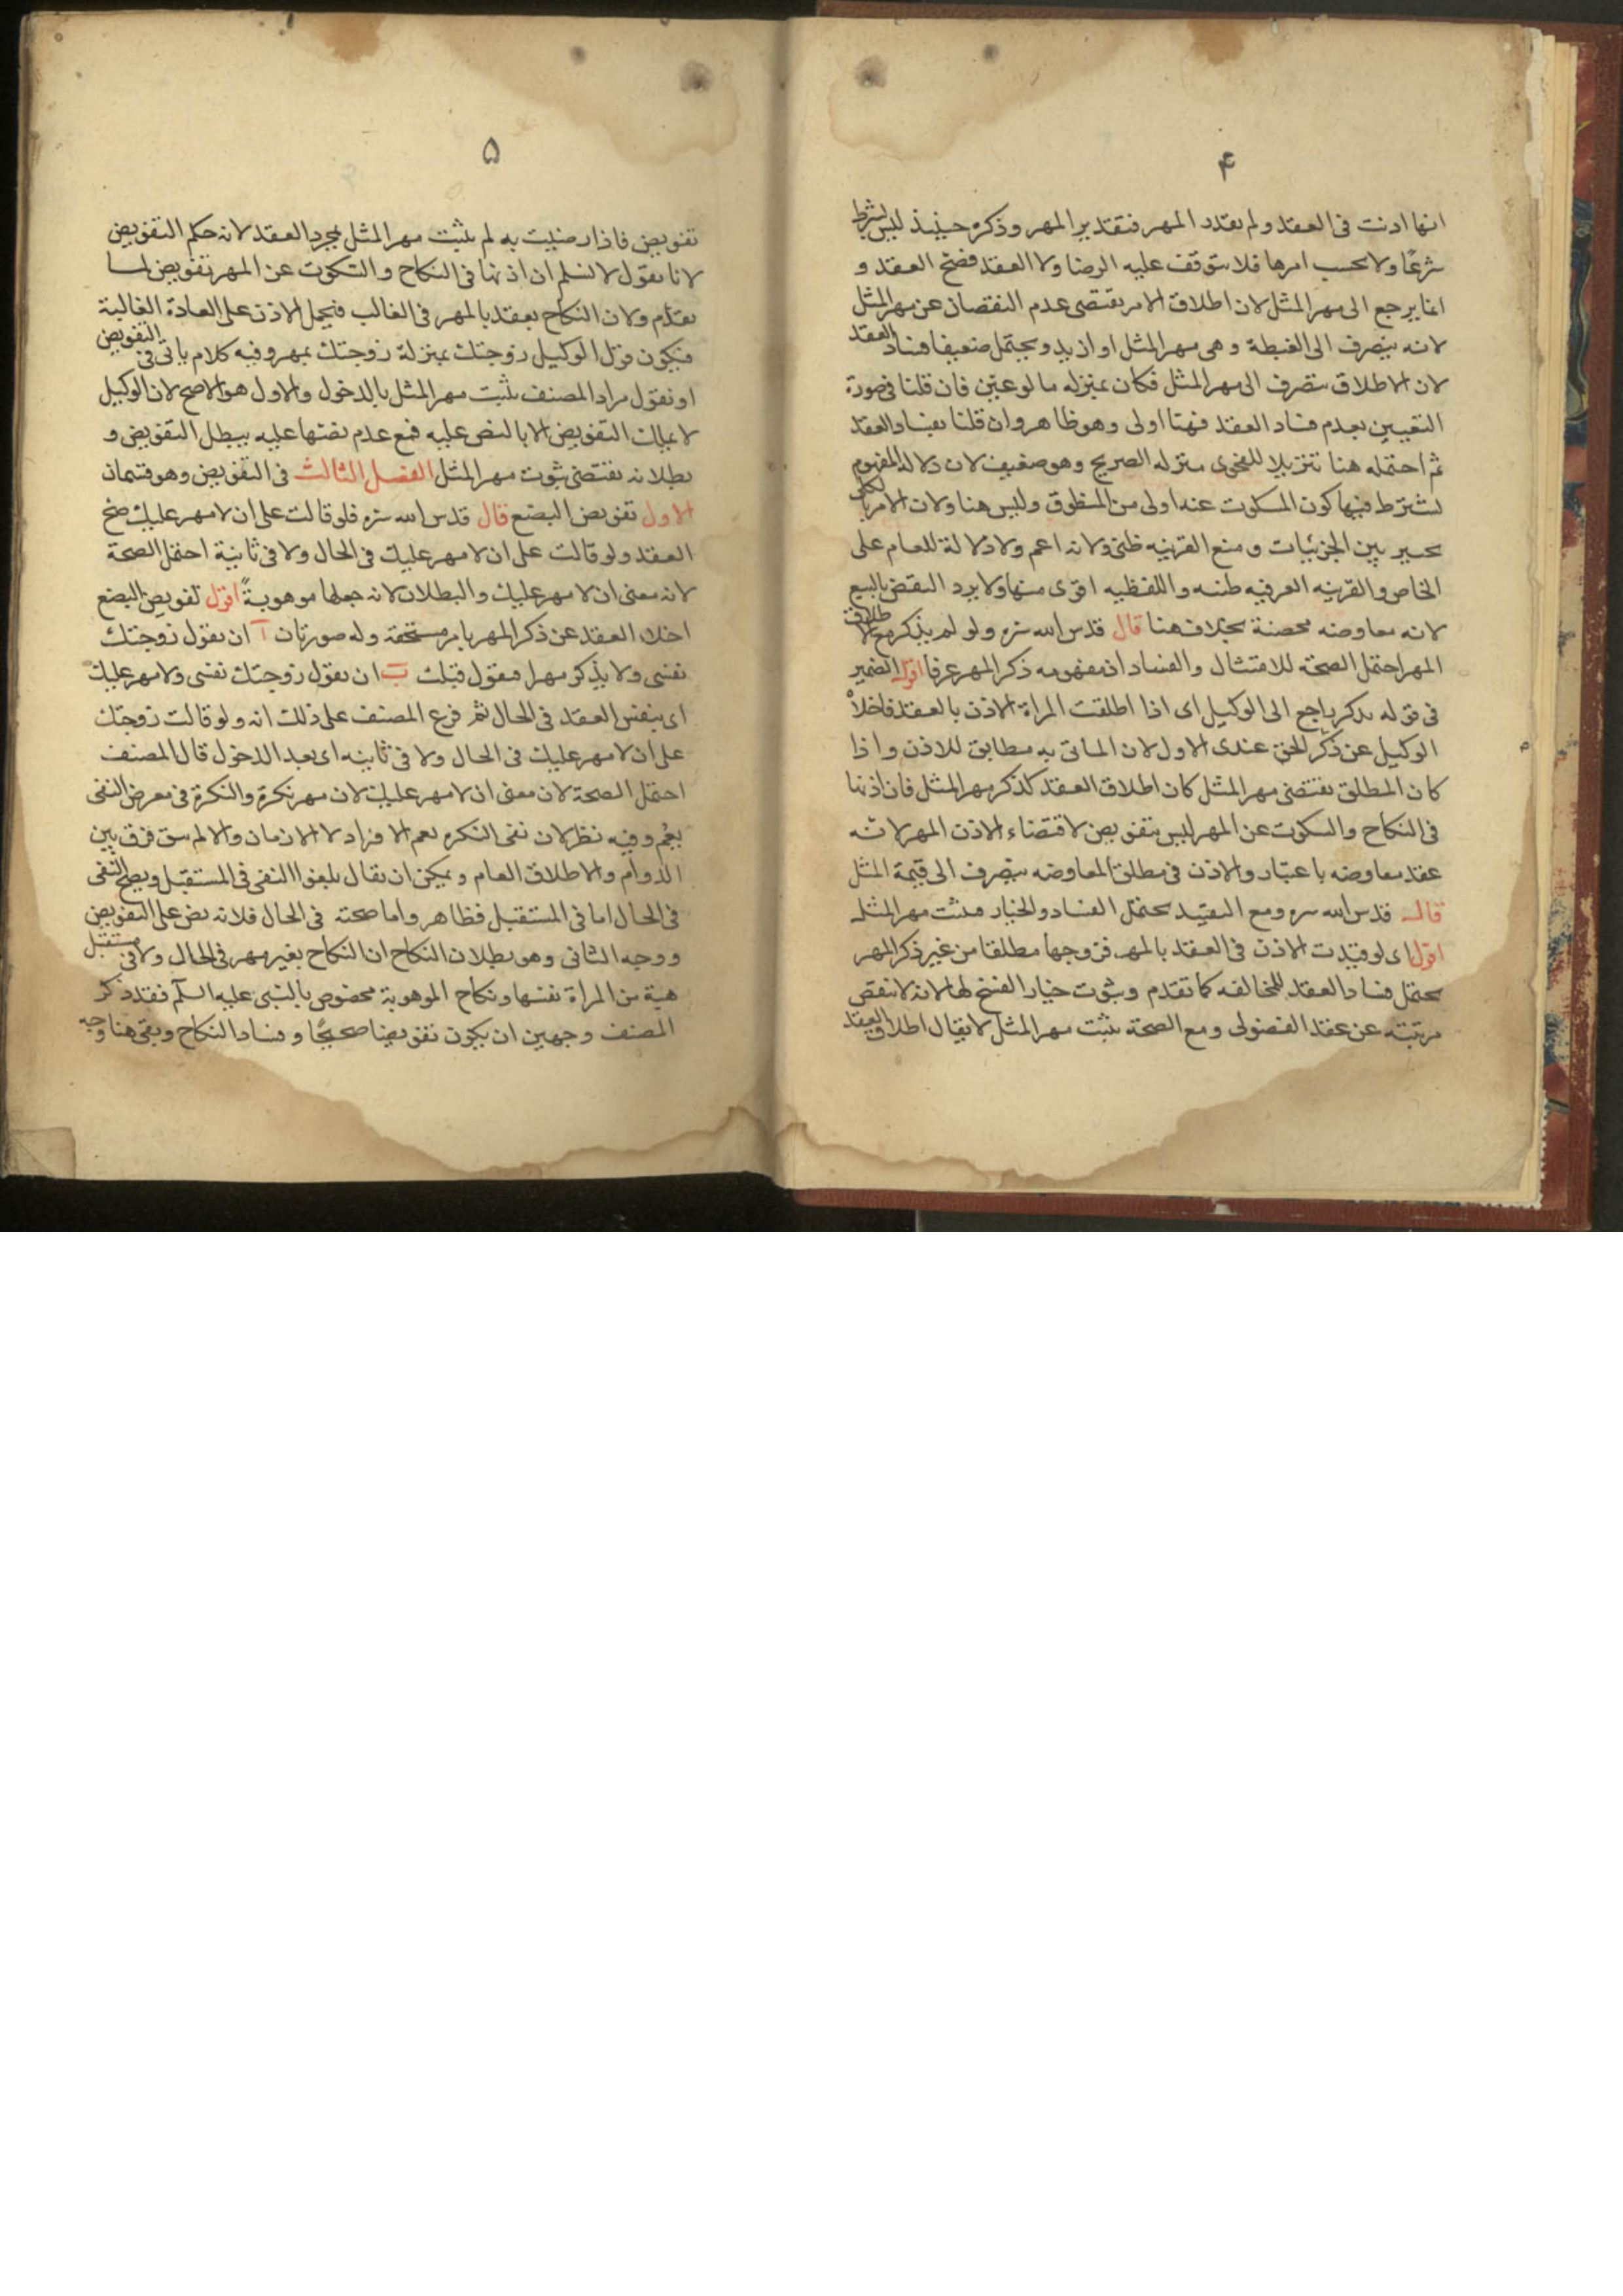 ۴
انها اذنت فى العقد ولم تقدر المهر فتقدير المهر وذكره حينئذ ليس بشرط
شرعًا ولا بحسب امرها فلا يتوقف عليه الرضا ولا العقد فصح العقد و
انما يرجع الى مهر المثل لان اطلاق الامر يقتضى عدم النقصان عن مهر المثل
لانه ينصرف الى الغبطة و هى مهر المثل او ازيد ويحتمل ضعيفا فساد العقد
لان الاطلاق ينصرف الى مهر المثل فكان بمنزله ما لو عين فان قلنا فى صورة
التعيين بعدم فساد العقد فهنا اولى وهو ظاهر وان قلنا بفساد العقد
ثم احتمله هنا تنزيلا للفحوى منزله الصريح وهو ضعيف لان دلالة المفهوم
يشترط فيها كون المسكوت عنه اولى من المنطوق وليس هنا ولان الامر بالكلى
تخيير بين الجزئيات و منع القرينه ظنى ولانه اعم ولا دلالة للعام على
الخاص والقرينه العرفيه ظنيه واللفظيه اقوى منها ولا يرد النقض بالبيع
لانه معاوضه محضة بخلاف هنا قال قدس الله سره ولو لم يذكر مع اطلاق
المهر احتمل الصحة للامتثال والفساد اذ مفهومه ذكر المهر عرفا اقول الضمير
فى قوله يذكر راجع الى الوكيل اى اذا اطلقت المراة الاذن بالعقد فاخلا
الوكيل عن ذكر الحق عندى الاول لان الماتى به مطابق للاذن واذا
كان المطلق يقتضى مهر المثل كان اطلاق العقد كذكر مهر المثل فان اذنها
فى النكاح والسكوت عن المهر ليس بتفويض لاقتضاء الاذن المهر لانه
عقد معاوضه باعتبار والاذن فى مطلق المعاوضه ينصرف الى قيمة المثل
قال قدس الله سره ومع التقييد يحتمل الفساد والخيار فيثبت مهر المثل
اقول اى لو قيدت الاذن فى العقد بالمهر فزوجها مطلقا من غير ذكر المهر
يحتمل فساد العقد للمخالفه كما تقدم وثبوت خيار الفسخ لها لانه لا ينقص
مرتبته عن عقد الفضولى ومع الصحة يثبت مهر المثل لا يقال اطلاق العقد
۵
تفويض فاذا رضيت به لم يثبت مهر المثل بمجرد العقد لانه حكم التفويض
لانا نقول لا نسلم ان اذنها فى النكاح والسكوت عن المهر تفويض لما
تقدم ولان النكاح يعقد بالمهر فى الغالب فيحمل الاذن على العادة الغالبة
فيكون قول الوكيل زوجتك بمنزلة زوجتك بمهر وفيه كلام ياتى فى التفويض
او نقول مراد المصنف يثبت مهر المثل بالدخول والاول هو الاصح لان الوكيل
لا يملك التفويض الا بالنص عليه فمع عدم نصها عليه يبطل التفويض و
بطلانه يقتضى ثبوت مهر المثل الفصل الثالث فى التفويض وهو قسمان
الاول تفويض البضع قال قدس الله سره فلو قالت على ان لا مهر عليك صح
العقد ولو قالت على ان لا مهر عليك فى الحال ولا فى ثانية احتمل الصحة
لانه معنى ان لا مهر عليك والبطلان لانه جعلها موهوبةً اقول تفويض البضع
اخلاء العقد عن ذكر المهر بامر مستحقه وله صورتان آ ان يقول زوجتك
نفسى ولا يذكر مهرا فيقول قبلت ب ان يقول زوجتك نفسى ولا مهر عليك
اى بنفس العقد فى الحال ثم فرع المصنف على ذلك انه ولو قالت زوجتك
على ان لا مهر عليك فى الحال ولا فى ثانيه اى بعد الدخول قال المصنف
احتمل الصحة لان معنى ان لا مهر عليك لان مهر نكرة والنكرة فى معرض النفى
يعم وفيه نظر لان نفى النكره يعم الافراد لا الازمان والا لم يبق فرق بين
الدوام والاطلاق العام و يمكن ان يقال يلغوا النفى فى المستقبل ويصح النفى
فى الحال اما فى المستقبل فظاهر واما صحته فى الحال فلانه نص على التفويض
ووجه الثانى وهو بطلان النكاح ان النكاح بغير مهر فى الحال ولا فى مستقبل
هبة من المراة نفسها ونكاح الموهوبة مخصوص بالنبى عليه السلم فقد ذكر
المصنف وجهين ان يكون تفويضا صحيحًا و فساد النكاح وبقى هنا وجه